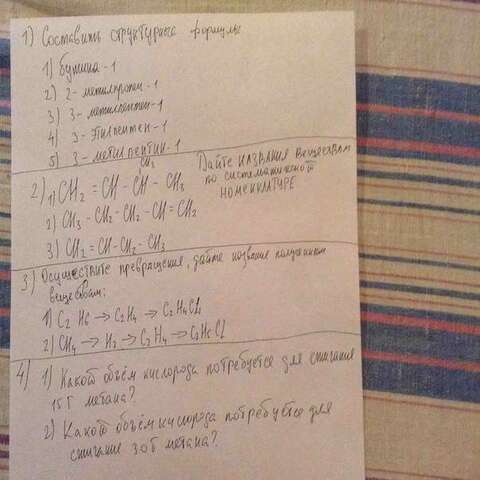 1) Составить структурные формулы
1) бутина-1
2) 2-метилпропен-1
3) 3-метилпентен-1
4) 3-этилпентен-1
5) 3-метилпентин-1
2) Дайте названия веществам
по систематической
номенклатуре
CH3
1) CH2 = CH - CH - CH3
2) CH3 - CH2 - CH2 - CH = CH2
3) CH2 = CH - CH2 - CH3
3) Осуществите превращения, дайте название полученным
веществам:
1) C2 H6 → C2H4 → C2H4Cl2
2) CH4 → H2 → C2H4 → C2H5Cl
4) 1) Какой объём кислорода потребуется для сжигания
15 г метана?
2) Какой объём кислорода потребуется для
сжигание 30б метана?